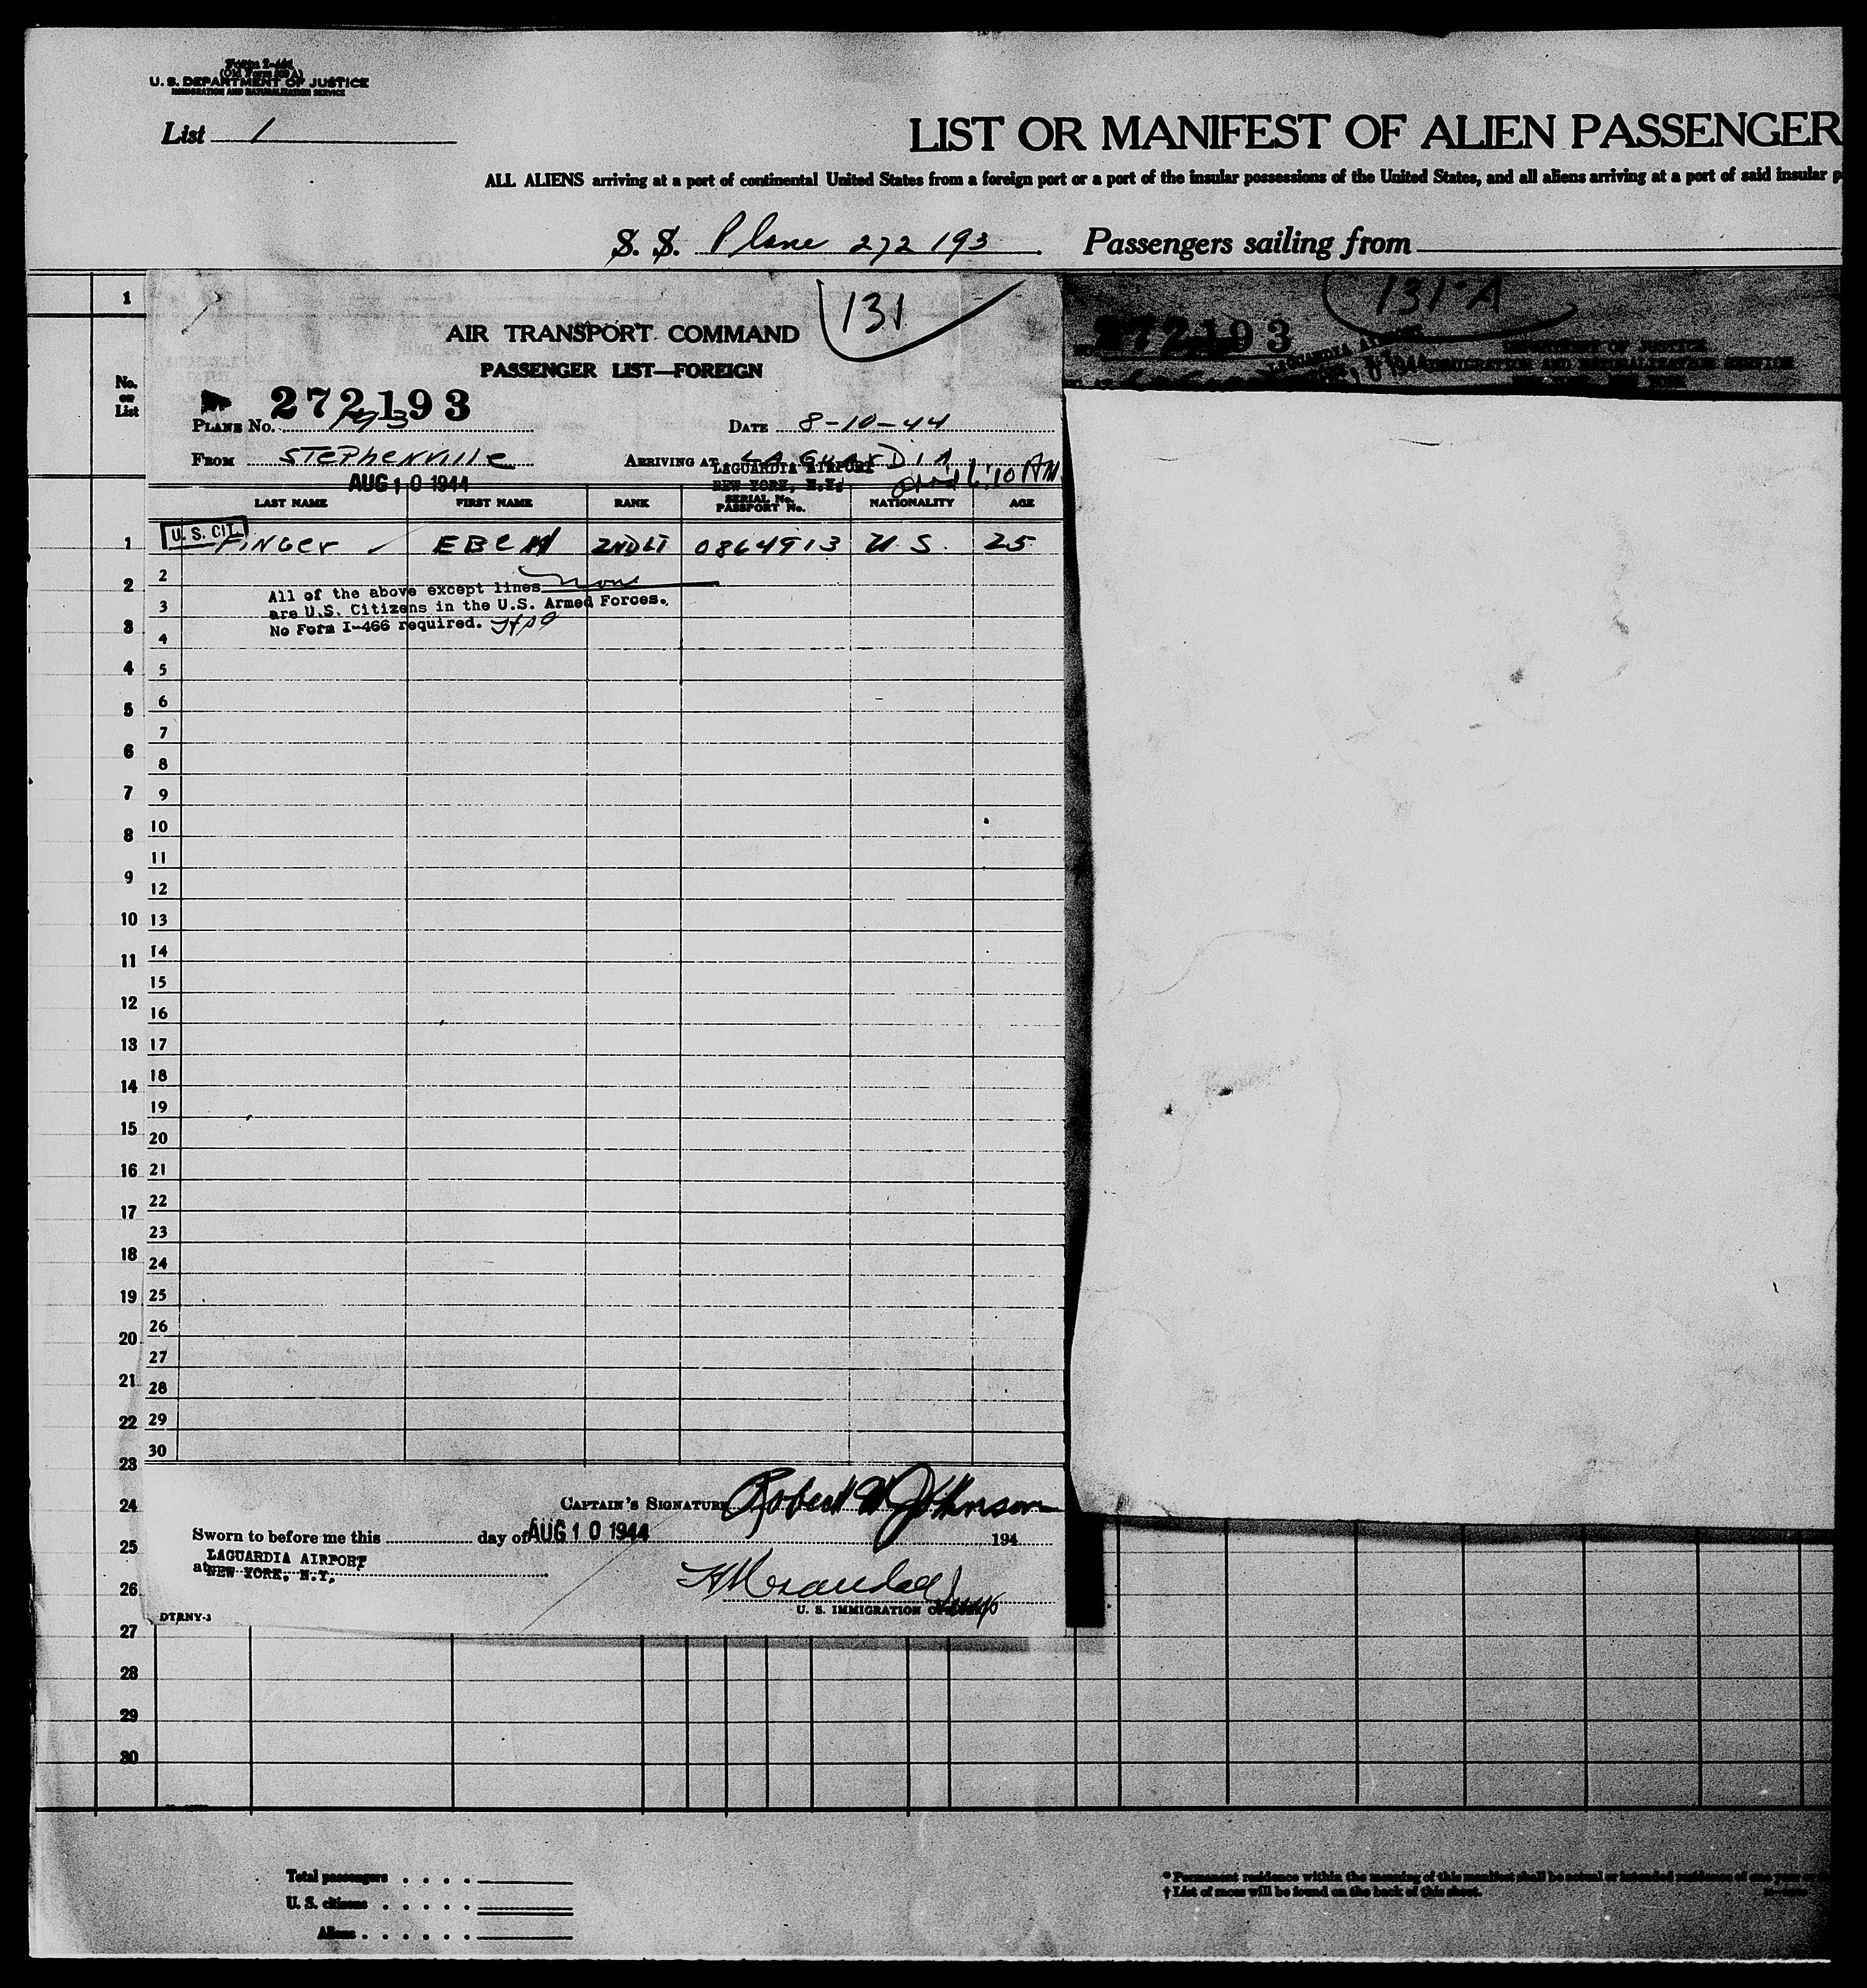 Form I-466
(Old Form 500 A)
U. S. DEPARTMENT OF JUSTICE
IMMIGRATION AND NATURALIZATION SERVICE
List 1
LIST OR MANIFEST OF ALIEN PASSENGER
ALL ALIENS arriving at a port of continental United States from a foreign port or a port of the insular possessions of the United States, and all aliens arriving at a port of said insular p
S. S. Plane 272193 Passengers sailing from
1
No. on List
131
AIR TRANSPORT COMMAND
PASSENGER LIST—FOREIGN
272193
PLANE No. 193 DATE 8-10-44
FROM STEPHENVILLE ARRIVING AT LA GUARDIA
LAGUARDIA AIRPORT
NEW YORK, N.Y. 6:10 AM
AUG 10 1944
LAST NAME FIRST NAME RANK SERIAL No. PASSPORT No. NATIONALITY AGE
U. S. CIT.
1 FINGER EBEN 2ND LT 0864913 U. S. 25
All of the above except lines none
are U.S. Citizens in the U.S. Armed Forces.
No Form I-466 required.
2
3
4
5
6
7
8
9
10
11
12
13
14
15
16
17
18
19
20
21
22
23
24
25
26
27
28
29
30
CAPTAIN'S SIGNATURE Robert W Johnson
Sworn to before me this day of AUG 10 1944 194
at LAGUARDIA AIRPORT
NEW YORK, N.Y.
U. S. IMMIGRATION
DTRNY-3
1
2
3
4
5
6
7
8
9
10
11
12
13
14
15
16
17
18
19
20
21
22
23
24
25
26
27
28
29
30
131-A
272193
LAGUARDIA
DEPARTMENT OF JUSTICE
IMMIGRATION AND NATURALIZATION SERVICE
Total passengers
U. S. citizens
Aliens
* Permanent residence within the meaning of this manifest shall be actual or intended residence of one year or
† List of races will be found on the back of this sheet.